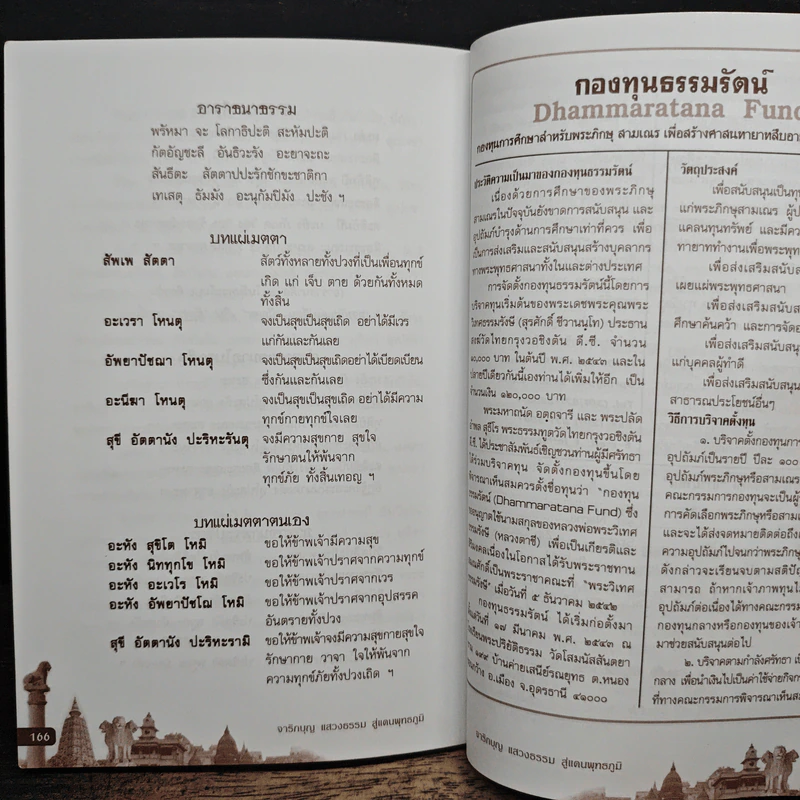 อาราธนาธรรม
พรัหมา จะ โลกาธิปะติ สะหัมปะติ
กัตอัญชะลี อันธิวะรัง อะยาจะถะ
สันธีตะ สัตตาปปะรักชักขะชาติกา
เทเสตุ ธัมมัง อะนุกัมปิมัง ปะชัง ฯ
บทแผ่เมตตา
สัพเพ สัตตา สัตว์ทั้งหลายทั้งปวงที่เป็นเพื่อนทุกข์
เกิด แก่ เจ็บ ตาย ด้วยกันทั้งหมด
ทั้งสิ้น
อะเวรา โหนตุ จงเป็นสุขเป็นสุขเถิด อย่าได้มีเวร
แก่กันและกันเลย
อัพยาปัชฌา โหนตุ จงเป็นสุขเป็นสุขเถิดอย่าได้เบียดเบียน
ซึ่งกันและกันเลย
อะนีฆา โหนตุ จงเป็นสุขเป็นสุขเถิด อย่าได้มีความ
ทุกข์กายทุกข์ใจเลย
สุขี อัตตานัง ปะริหะรันตุ จงมีความสุขกาย สุขใจ
รักษาตนให้พ้นจาก
ทุกข์ภัย ทั้งสิ้นเทอญ ฯ
บทแผ่เมตตาตนเอง
อะหัง สุขิโต โหมิ ขอให้ข้าพเจ้ามีความสุข
อะหัง นิททุกโข โหมิ ขอให้ข้าพเจ้าปราศจากความทุกข์
อะหัง อะเวโร โหมิ ขอให้ข้าพเจ้าปราศจากเวร
อะหัง อัพยาปัชโฌ โหมิ ขอให้ข้าพเจ้าปราศจากอุปสรรค
อันตรายทั้งปวง
สุขี อัตตานัง ปะริหะรามิ ขอให้ข้าพเจ้าจงมีความสุขกายสุขใจ
รักษากาย วาจา ใจให้พ้นจาก
ความทุกข์ภัยทั้งปวงเถิด ฯ
166
จาริกบุญ แสวงธรรม สู่แดนพุทธภูมิ
กองทุนธรรมรัตน์
Dhammaratana Fund
กองทุนการศึกษาสำหรับพระภิกษุ สามเณร เพื่อสร้างศาสนทายาทสืบอา
ประวัติความเป็นมาของกองทุนธรรมรัตน์
เนื่องด้วยการศึกษาของพระภิกษุ
สามเณรในปัจจุบันยังขาดการสนับสนุน และ
อุปถัมภ์บำรุงด้านการศึกษาเท่าที่ควร เพื่อ
เป็นการส่งเสริมและสนับสนุนสร้างบุคลากร
ทางพระพุทธศาสนาทั้งในและต่างประเทศ
การจัดตั้งกองทุนธรรมรัตน์นี้โดยการ
บริจาคทุนเริ่มต้นของพระเดชพระคุณพระ
วิเทศธรรมรังษี (สุรศักดิ์ ชีวานนฺโท) ประธาน
สงฆ์วัดไทยกรุงวอชิงตัน ดี.ซี. จำนวน
๒๐,๐๐๐ บาท ในต้นปี พ.ศ. ๒๕๔๓ และใน
ปลายปีเดียวกันนี้เองท่านได้เพิ่มให้อีก เป็น
จำนวนเงิน ๑๒๐,๐๐๐ บาท
พระมหาถนัด อตฺถจารี และ พระปลัด
สุธีโร พระธรรมทูตวัดไทยกรุงวอชิงตัน
ดี.ซี. ได้ประชาสัมพันธ์เชิญชวนท่านผู้มีศรัทธา
ได้ร่วมบริจาคทุน จัดตั้งกองทุนขึ้นโดย
พิจารณาเห็นสมควรตั้งชื่อทุนว่า "กองทุน
ธรรมรัตน์ (Dhammaratana Fund) ซึ่ง
ขออนุญาตใช้นามสกุลของหลวงพ่อพระวิเทศ
ธรรมรังษี (หลวงตาชี) เพื่อเป็นเกียรติและ
สิริมงคลเนื่องในโอกาสได้รับพระราชทาน
สมณศักดิ์เป็นพระราชาคณะที่ "พระวิเทศ
ธรรมรังษี" เมื่อวันที่ ๕ ธันวาคม ๒๕๔๒
กองทุนธรรมรัตน์ ได้เริ่มก่อตั้งมา
ตั้งแต่วันที่ ๑๗ มีนาคม พ.ศ. ๒๕๔๓ ณ
โรงเรียนพระปริยัติธรรม วัดโสมนัสสันตยา
ราม ๑๙๙ บ้านค่ายเสนีย์รณยุทธ ต.หนอง
นาคำ อ.เมือง จ.อุดรธานี ๔๑๐๐๐
วัตถุประสงค์
เพื่อสนับสนุนเป็นทุ
แก่พระภิกษุสามเณร ผู้
แคลนทุนทรัพย์ และมีคว
ทายาททำงานเพื่อพระพุท
เพื่อส่งเสริมสนับสนุ
เผยแผ่พระพุทธศาสนา
เพื่อส่งเสริมสนับสนุ
ศึกษาค้นคว้า และการจัด
เพื่อส่งเสริมสนับสนุ
แก่บุคคลผู้ทำดี
เพื่อส่งเสริมสนับสนุ
สาธารณประโยชน์อื่นๆ
วิธีการบริจาคตั้งทุน
๑. บริจาคตั้งกองทุนการ
อุปถัมภ์เป็นรายปี ปีละ ๑๐๐
อุปถัมภ์พระภิกษุหรือสามเณ
คณะกรรมการกองทุนจะเป็นผู้
การคัดเลือกพระภิกษุหรือสามเ
และจะได้ส่งจดหมายติดต่อถึง
ความอุปถัมภ์ไปจนกว่าพระภิกษุ
ดังกล่าวจะเรียนจบตามสติปั
สามารถ ถ้าหากเจ้าภาพทุนไ
อุปถัมภ์ต่อเนื่องได้ทางคณะกรรม
กองทุนกลางหรือกองทุนของเจ้า
มาช่วยสนับสนุนต่อไป
๒. บริจาคตามกำลังศรัทธา เ
กลาง เพื่อนำเงินไปเป็นค่าใช้จ่ายกิจก
ที่ทางคณะกรรมการพิจารณาเห็นสม
จาริกบุญ แสวงธรรม สู่แดนพุทธภูมิ